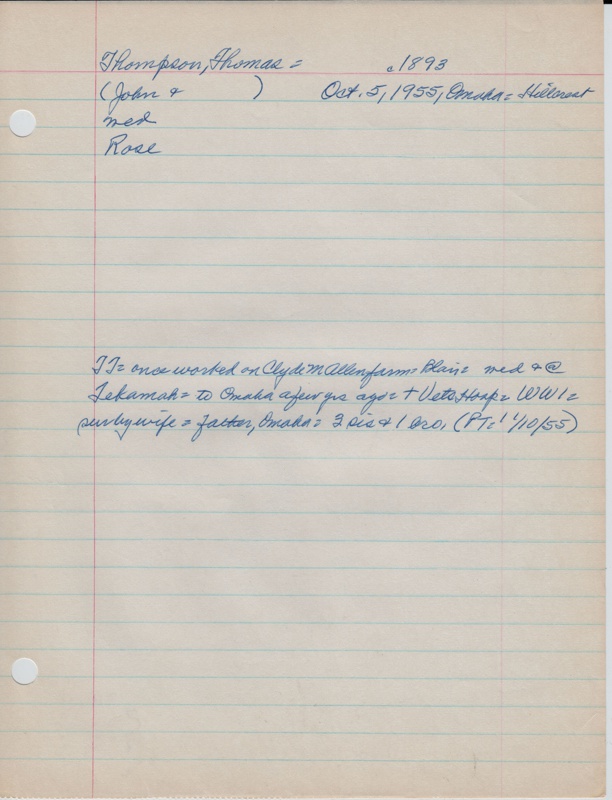 Thompson, Thomas = c1893
(John & ) Oct. 5, 1955, Omaha = Hillcrest
med
Rose
TT = once worked on Clyde M Allen farm = Blair = med & @
Tekamah = to Omaha a few yrs ago = + Vets Hosp = WW1 =
surbywife = father, Omaha = 3 sis & 1 bro. (PT: 11/10/55)